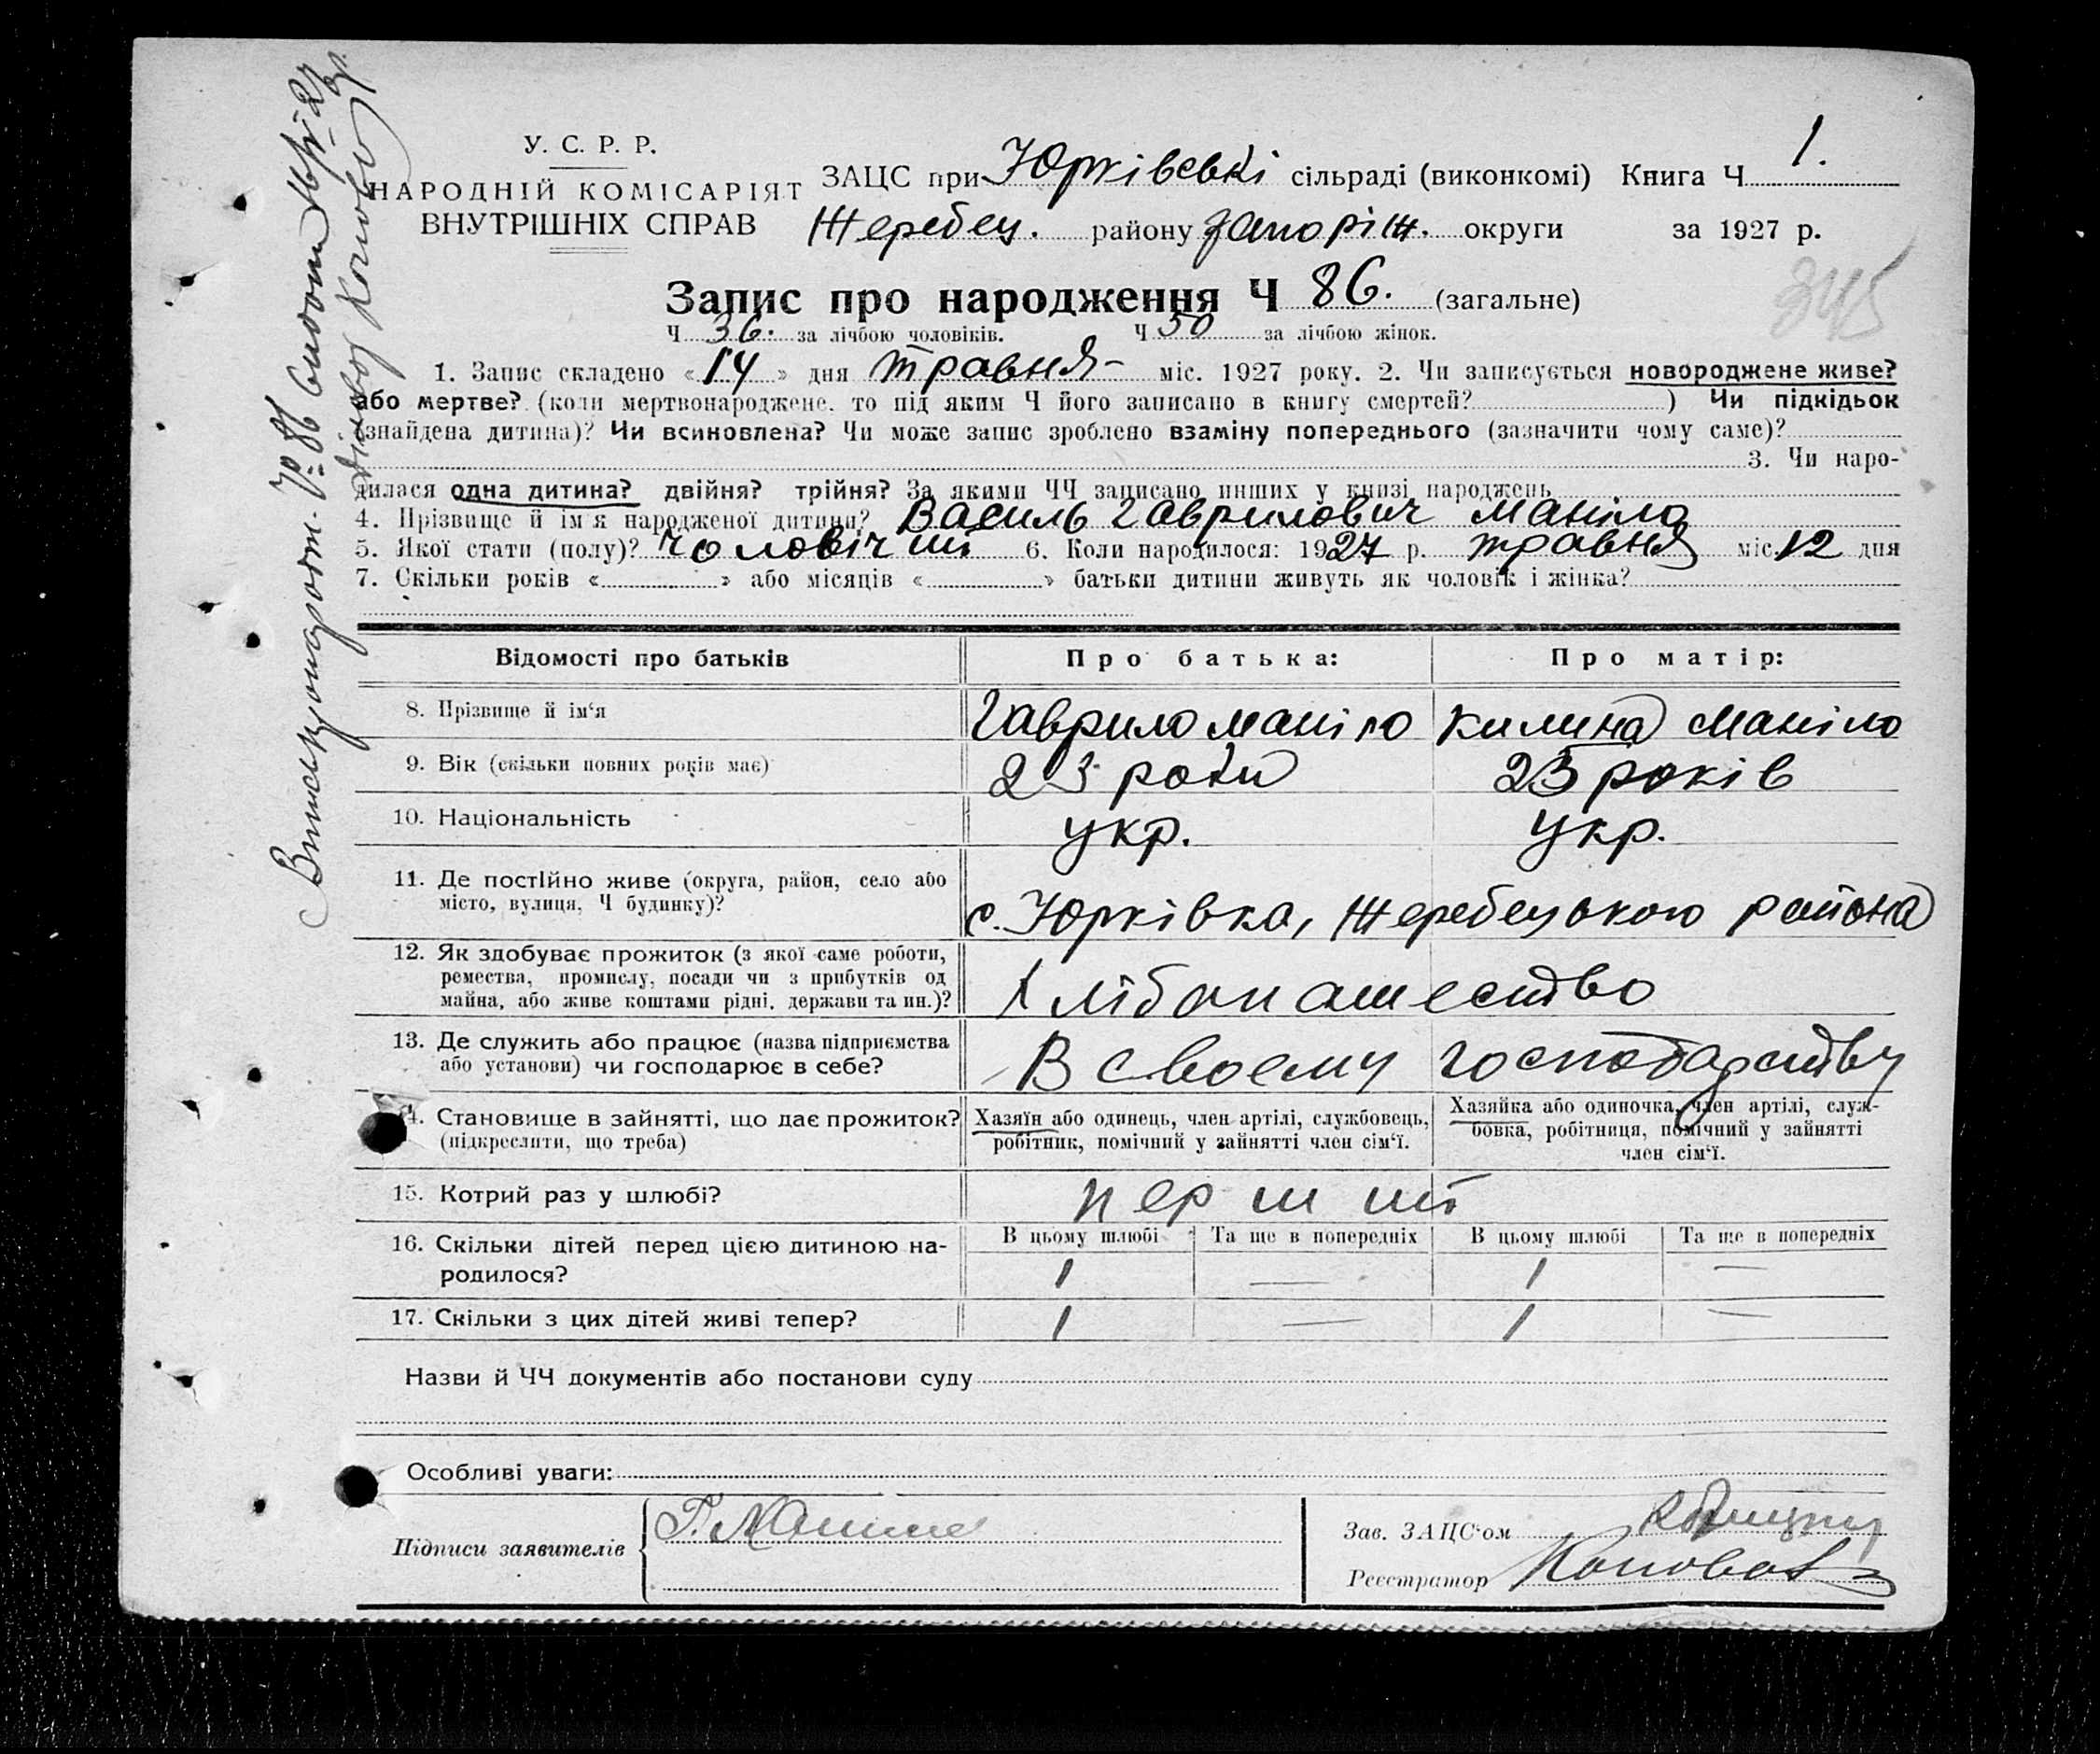 У. С. Р. Р.
НАРОДНІЙ КОМІСАРІЯТ
ВНУТРІШНІХ СПРАВ
ЗАЦС при Юрківські сільраді (виконкомі) Книга Ч 1.
Жеребец. району Запоріж. округи за 1927 р.
345
Запис про народження Ч 86. (загальне)
Ч 36. за лічбою чоловіків. Ч 50 за лічбою жінок.
1. Запис складено «14» дня травня міс. 1927 року. 2. Чи записується новороджене живе?
або мертве? (коли мертвонароджене, то під яким Ч його записано в книгу смертей? ) Чи підкідьок
(знайдена дитина)? Чи всиновлена? Чи може запис зроблено взаміну попереднього (зазначити чому саме)?
3. Чи наро-
дилася одна дитина? двійня? трійня? За якими ЧЧ записано инших у книзі народжень
4. Прізвище й ім'я народженої дитини? Василь Гаврилович Маніло
5. Якої стати (полу)? чоловічиї 6. Коли народилося: 1927 р. травня міс. 12 дня
7. Скільки років « » або місяців « » батьки дитини живуть як чоловік і жінка?
Відомості про батьків Про батька: Про матір:
8. Прізвище й ім'я Гаврило Маніло Килина Маніло
9. Вік (скільки повних років має) 23 роки 23 років
10. Національність укр. укр.
11. Де постійно живе (округа, район, село або
місто, вулиця, Ч будинку)? с. Юрківка, Жеребецького района
12. Як здобуває прожиток (з якої саме роботи,
ремества, промислу, посади чи з прибутків од
майна, або живе коштами рідні, держави та ин.)? Хлібопашество
13. Де служить або працює (назва підприємства
або установи) чи господарює в себе? В своему господарству
14. Становище в зайнятті, що дає прожиток?
(підкреслити, що треба)
Хазяїн або одинець, член артілі, службовець,
робітник, помічний у зайнятті член сім'ї.
Хазяйка або одиночка, член артілі, служ-
бовка, робітниця, помічний у зайнятті
член сім'ї.
15. Котрий раз у шлюбі? перший
16. Скільки дітей перед цією дитиною на-
родилося?
В цьому шлюбі Та ще в попередніх В цьому шлюбі Та ще в попередніх
1 — 1 —
17. Скільки з цих дітей живі тепер? 1 — 1 —
Назви й ЧЧ документів або постанови суду
Особливі уваги:
Підписи заявителів
Зав. ЗАЦС'ом
Реєстратор